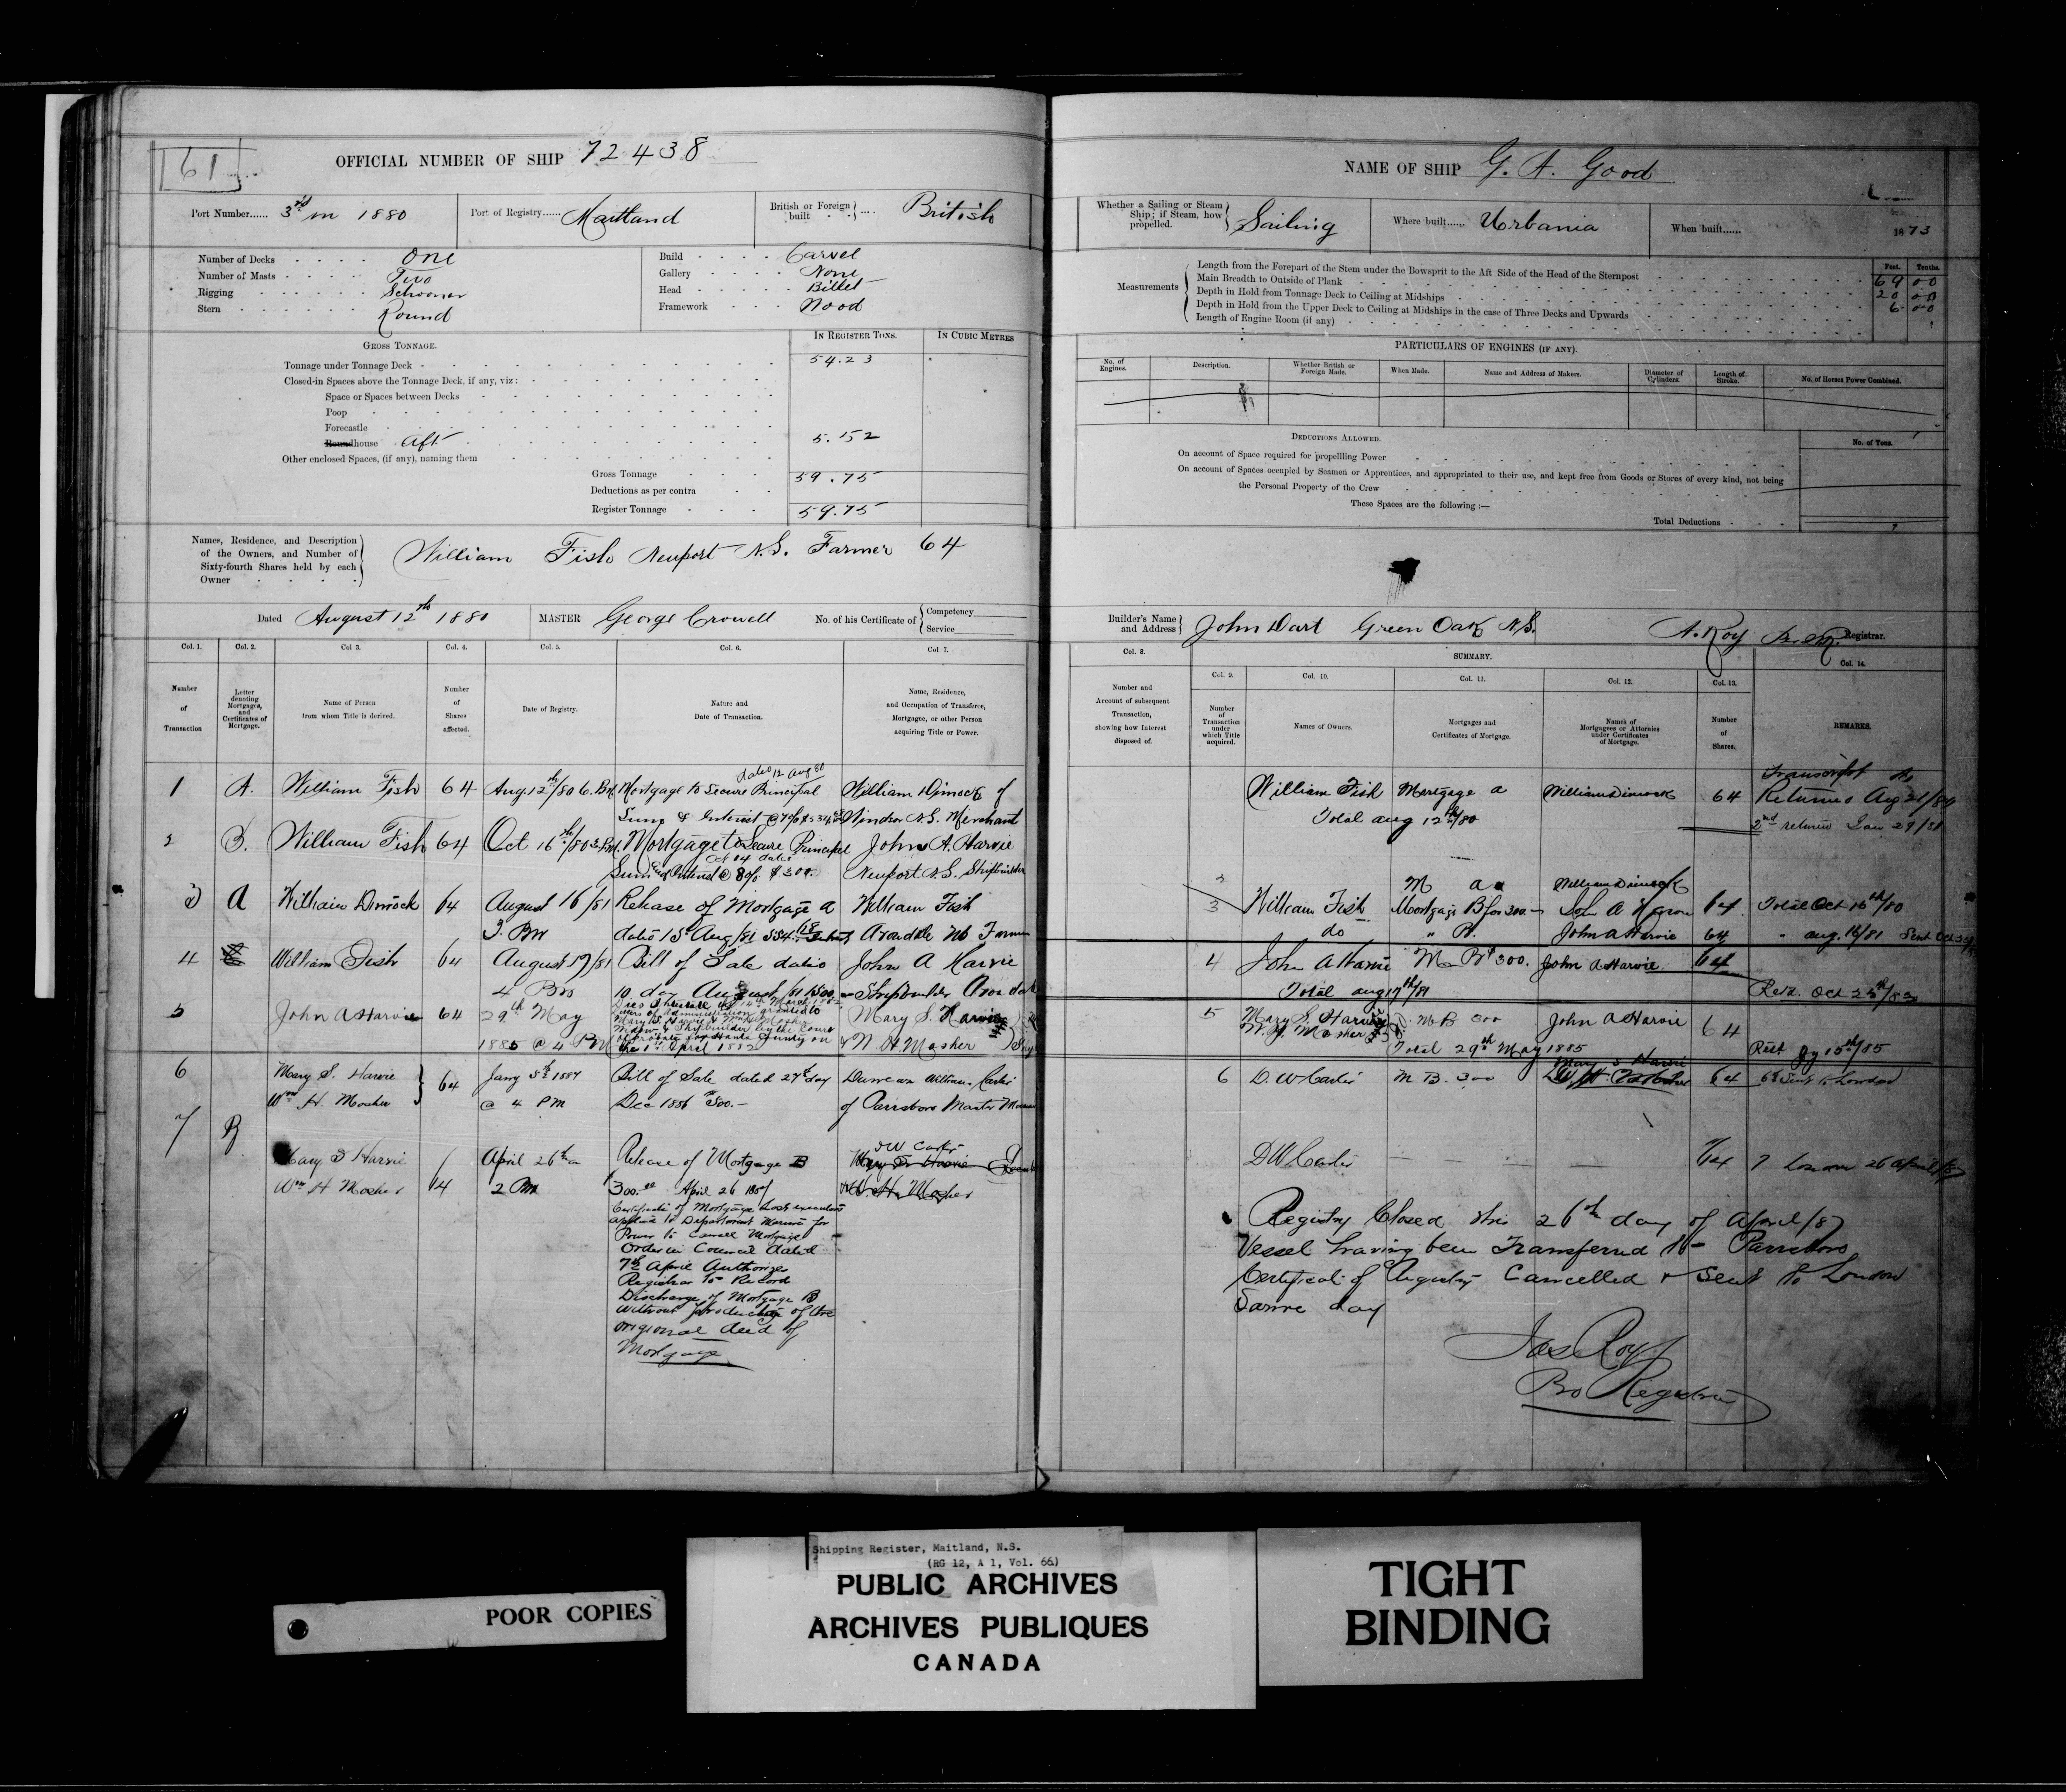 61
OFFICIAL NUMBER OF SHIP 72438
Port Number...... 3rd in 1880
Port of Registry...... Maitland
British or Foreign built .... British
Number of Decks One
Number of Masts Two
Rigging Schooner
Stern Round
Build Carvel
Gallery None
Head Billet
Framework Wood
GROSS TONNAGE.
IN REGISTER TONS.
IN CUBIC METRES
Tonnage under Tonnage Deck 54.23
Closed-in Spaces above the Tonnage Deck, if any, viz:
Space or Spaces between Decks
Poop
Forecastle
Roundhouse Aft 5.52
Other enclosed Spaces, (if any), naming them
Gross Tonnage 59.75
Deductions as per contra
Register Tonnage 59.75
Names, Residence, and Description
of the Owners, and Number of
Sixty-fourth Shares held by each
Owner
William Fish Newport N.S. Farmer 64
Dated August 12th 1880
MASTER George Crowell
No. of his Certificate of
Competency
Service
Col. 1. Col. 2. Col 3. Col. 4. Col. 5. Col. 6. Col 7.
Number of Transaction
Letter denoting Mortgages, and Certificates of Mortgage.
Name of Person from whom Title is derived.
Number of Shares affected.
Date of Registry.
Nature and Date of Transaction.
Name, Residence, and Occupation of Transferee, Mortgagee, or other Person acquiring Title or Power.
dated 12 Aug 80
1 A. William Fish 64 Aug 12th/80 Mortgage to Secure Principal William Dimock of
Sum & Interest @ 7% Windsor N.S. Merchant
2 B. William Fish 64 Oct 16th/80 Mortgage to Secure Principal John A. Harvie
Oct 14 dated
Sum and Interest @ 8% $300. Newport N.S. Shipbuilder
3 A William Dimock 64 August 16/81 Release of Mortgage A William Fish
3 PM dated 15 Aug/81 Avondale NS Farmer
4 William Fish 64 August 19/81 Bill of Sale dated John A Harvie
4 PM 10 day August/81 Shipbuilder Avondale
5 John A Harvie 64 29th May Mary S. Harvie
Letters of Administration granted to
Mary S. Harvie &
Widow & Shipbuilder by the Court
of Probate for Hants County on
1885 @ 4 PM the 1st April 1882 & W H Mosher
6 Mary S. Harvie 64 Jany 5th 1887 Bill of Sale dated 27th day Duncan William Carter
Wm H. Mosher @ 4 PM Dec 1886 $500.- of Parrsboro Master
7 B
Mary S Harvie 64 April 26th Release of Mortgage B DW Carter
Mary S. Harvie
Wm H Mosher 2 PM 300.00 April 26 1887 W. H. Mosher
Certificate of Mortgage Lost executors
applied to Department Marine for
Power to Cancell Mortgage
Order in Council dated
7th April Authorizes
Registrar to Record
Discharge of Mortgage B
without production of the
origional deed of
Mortgage
NAME OF SHIP G. A. Good
Whether a Sailing or Steam Ship; if Steam, how propelled. Sailing
Where built...... Urbania
When built...... 1873
Measurements
Feet. Tenths.
Length from the Forepart of the Stem under the Bowsprit to the Aft Side of the Head of the Sternpost 69 00
Main Breadth to Outside of Plank 20 00
Depth in Hold from Tonnage Deck to Ceiling at Midships 6 00
Depth in Hold from the Upper Deck to Ceiling at Midships in the case of Three Decks and Upwards
Length of Engine Room (if any)
PARTICULARS OF ENGINES (IF ANY).
No. of Engines.
Description.
Whether British or Foreign Made.
When Made.
Name and Address of Makers.
Diameter of Cylinders.
Length of Stroke.
No. of Horses Power Combined.
DEDUCTIONS ALLOWED.
No. of Tons.
On account of Space required for propellling Power
On account of Spaces occupied by Seamen or Apprentices, and appropriated to their use, and kept free from Goods or Stores of every kind, not being
the Personal Property of the Crew
These Spaces are the following :—
Total Deductions
Builder's Name and Address John Dart Green Oak N.S.
A. Roy Registrar.
Col. 8.
SUMMARY.
Col. 9. Col. 10. Col. 11. Col. 12. Col. 13. Col. 14.
Number and Account of subsequent Transaction, showing how Interest disposed of.
Number of Transaction under which Title acquired.
Names of Owners.
Mortgages and Certificates of Mortgage.
Names of Mortgagees or Attornies under Certificates of Mortgage.
Number of Shares.
REMARKS.
Transcript
William Fish Mortgage A William Dimock 64 Returned Aug 21/80
Total Aug 12th/80 2nd returned Jan 29/81
2 M A William Dimock
3 William Fish Mortgage B for 300.- John A Harvie 64 Total Oct 16th/80
do " B. John A Harvie 64 " Aug. 16/81
4 John A Harvie M B $300. John A Harvie 64
Total Aug 19th/81 Retd. Oct 25th/82
5 Mary S. Harvie M B 300 John A Harvie 64
W. H. Mosher
Total 29th May 1885
Mary S Harvie
6 D. W Carter M B. 300 W H Mosher 64 6 Sent to London
DW Carter 64 7 London 26 April/87
Registry Closed this 26th day of April/87
Vessel having been Transferred to Parrsboro
Certificate of Registry Cancelled & Sent to London
Same day
Jas Roy
Registrar
Shipping Register, Maitland, N.S.
(RG 12, A 1, Vol. 66)
PUBLIC ARCHIVES
ARCHIVES PUBLIQUES
CANADA
POOR COPIES
TIGHT
BINDING